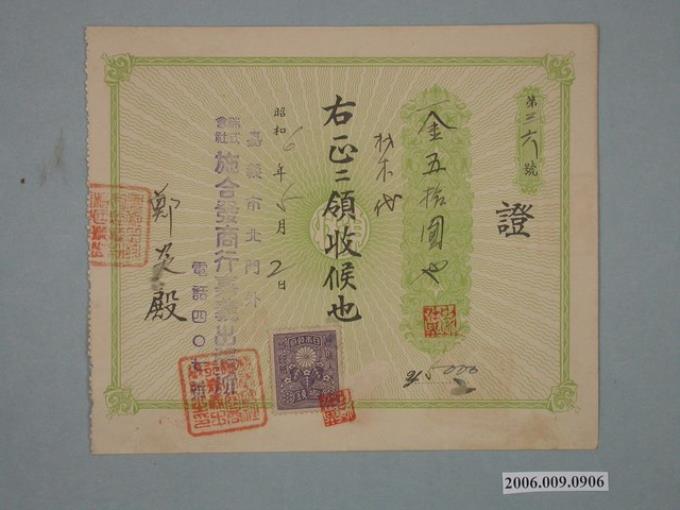 第三六號
證
金五拾圓也
材木代
右正ニ領收候也
昭和6年5月2日
嘉義市北門外
株式會社 施合發商行嘉義出張所
電話四〇
鄭炎殿
5000
2006.009.0906